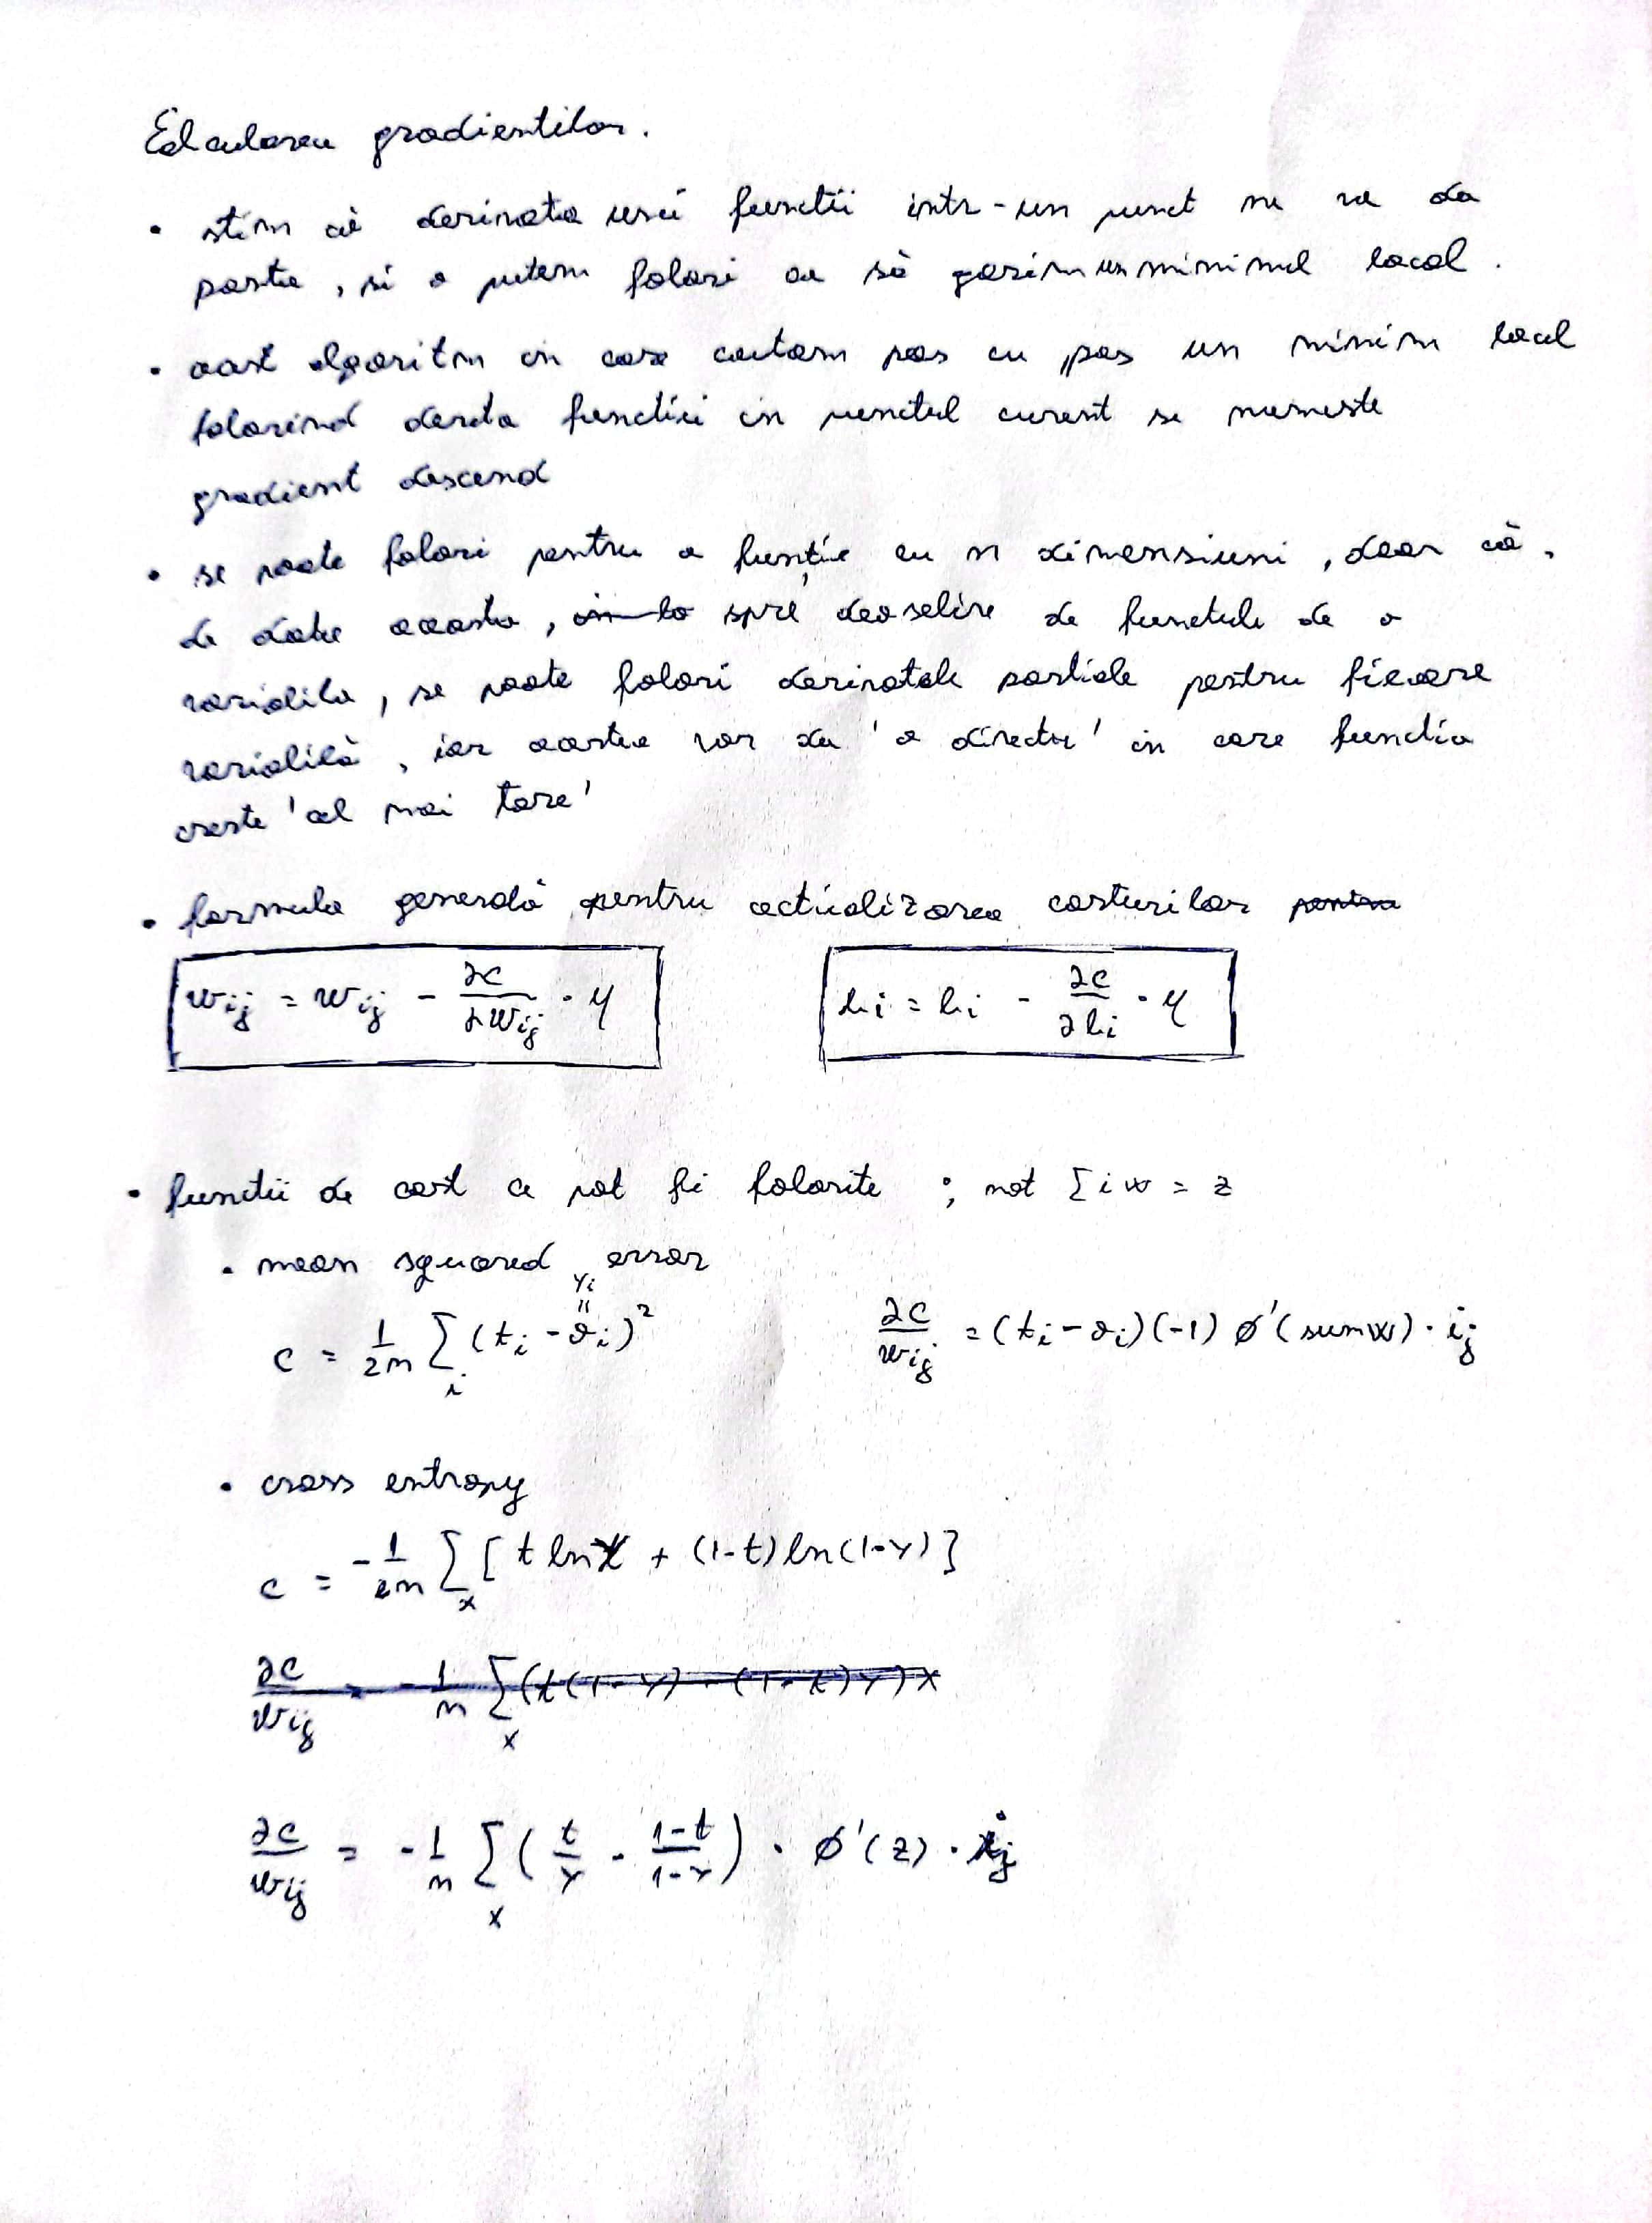 Calcularea gradientilor.
• stim că derivata unei functii intr-un punct ne va da
panta, si o putem folosi ca să gasim un minimul local.
• acest algoritm in care cautam pas cu pas un minim local
folosind functiei in punctul curent se numeste
gradient descend
• se poate folosi pentru o funcție cu n dimensiuni, doar că,
de data aceasta, spre deosebire de functiile de o
variabila, se poate folosi derivatele partiale pentru fiecare
variabilă, iar acestea vor da 'o directie' in care functia
creste 'cel mai tare'
• formula generală pentru actualizarea costurilor pentru
wij = wij - ∂c/∂wij · η    bi = bi - ∂c/∂bi · η
• functii de cost ce pot fi folosite ; not ∑iw = z
• mean squared error
c = 1/2n ∑i (ti - oi)² yi    ∂c/wij = (ti - oi)(-1) ø'(sumw) · ij
• cross entropy
c = -1/2n ∑x [t ln y + (1-t) ln(1-y)]
∂c/wij = -1/n ∑x (t(1-y) - (1-t)y) x
∂c/wij = -1/n ∑x (t/y - 1-t/1-y) · ø'(z) · ij